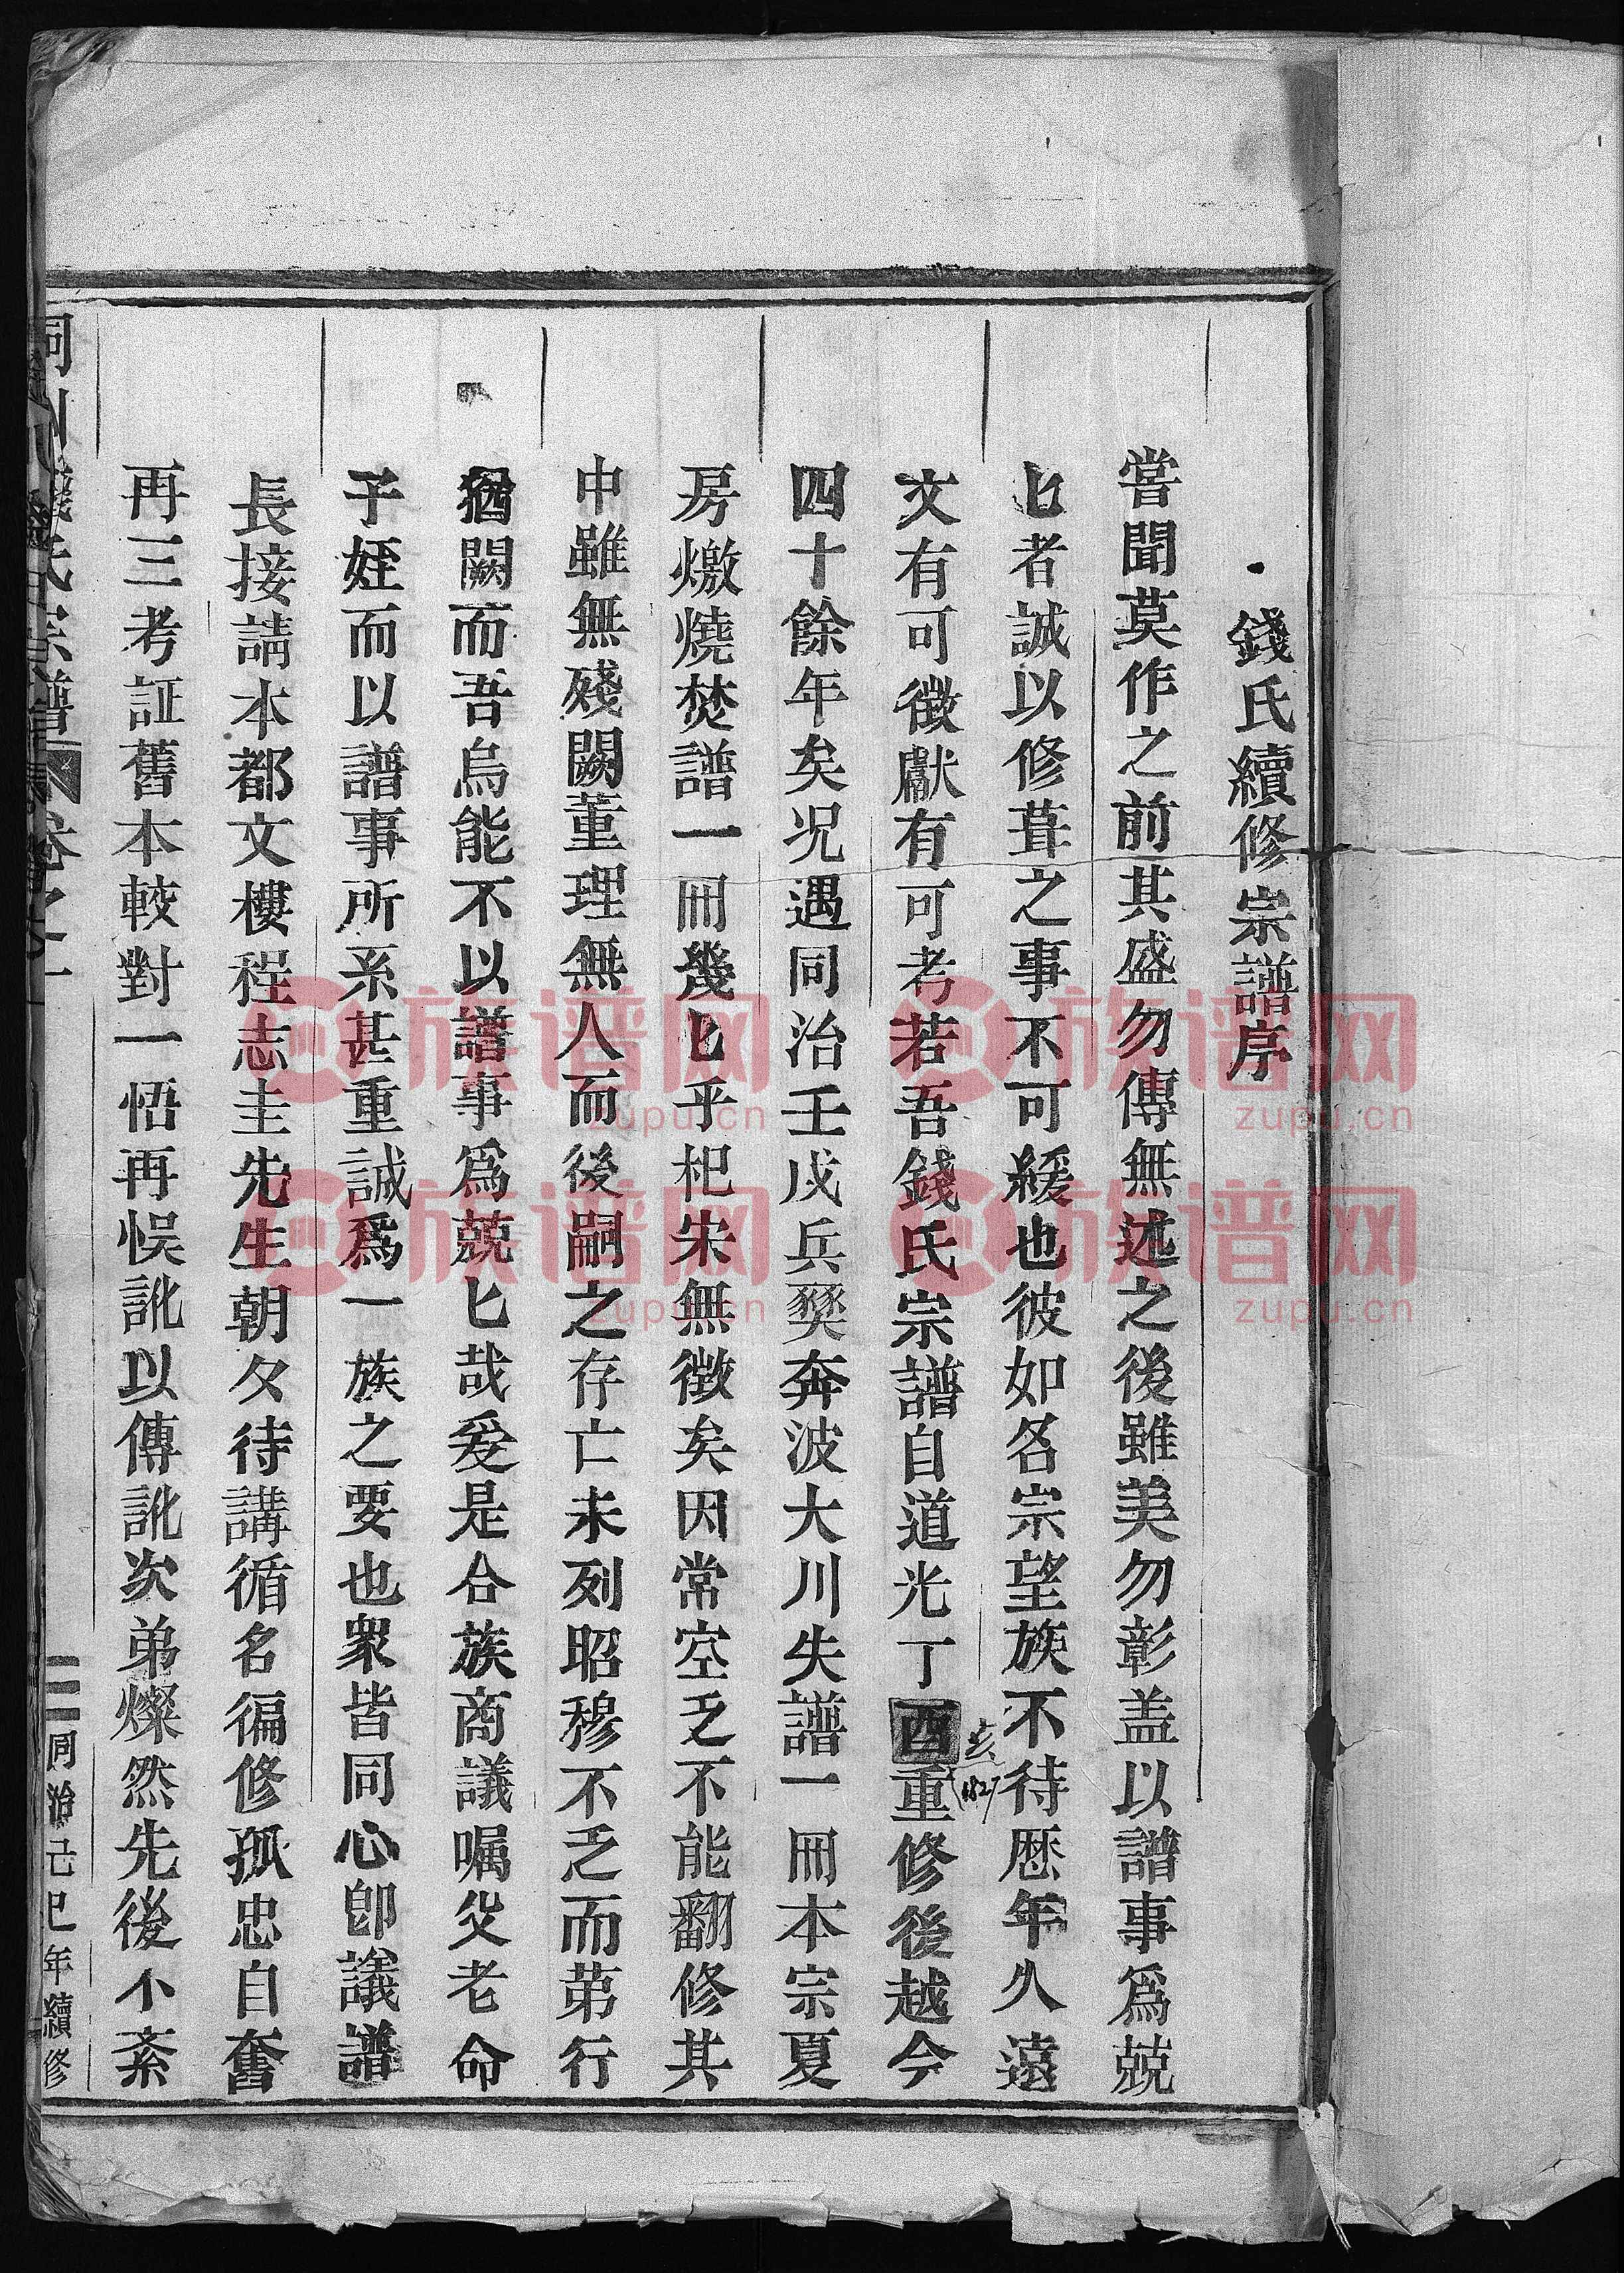 錢氏續修宗譜序
嘗聞莫作之前其盛勿傳無述之後雖美勿彰盖以譜事爲兢
匕者誠以修葺之事不可緩也彼如各宗望族不待歷年久遠
文有可徵獻有可考若吾錢氏宗譜自道光丁酉重修後越今
亥
(1827)
四十餘年矣况遇同治壬戍兵燹奔波大川失譜一冊本宗夏
房燬燒焚譜一冊幾匕乎杞宋無徵矣因常空乏不能翻修其
中雖無殘闕董理無人而後嗣之存亡未列昭穆不乏而苐行
猶闕而吾烏能不以譜事爲兢匕哉爰是合族商議嘱父老命
子姪而以譜事所系甚重誠爲一族之要也衆皆同心卽議譜
長接請本都文樓程志圭先生朝夕待講循名徧修孤忠自奮
再三考証舊本較對一悟再悞訛以傳訛次弟燦然先後不紊
氏宗譜
卷之一
同治己巳年續修
族谱网
zupu.cn
族谱网
zupu.cn
族谱网
zupu.cn
族谱网
zupu.cn